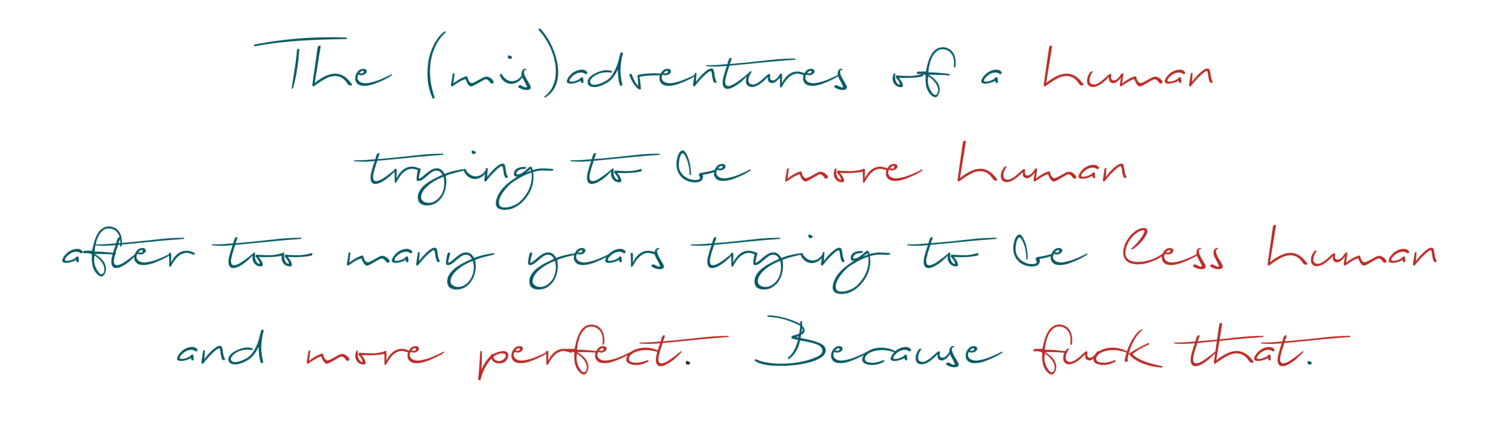 The (mis)adventures of a human
trying to be more human
after too many years trying to be less human
and more perfect. Because fuck that.